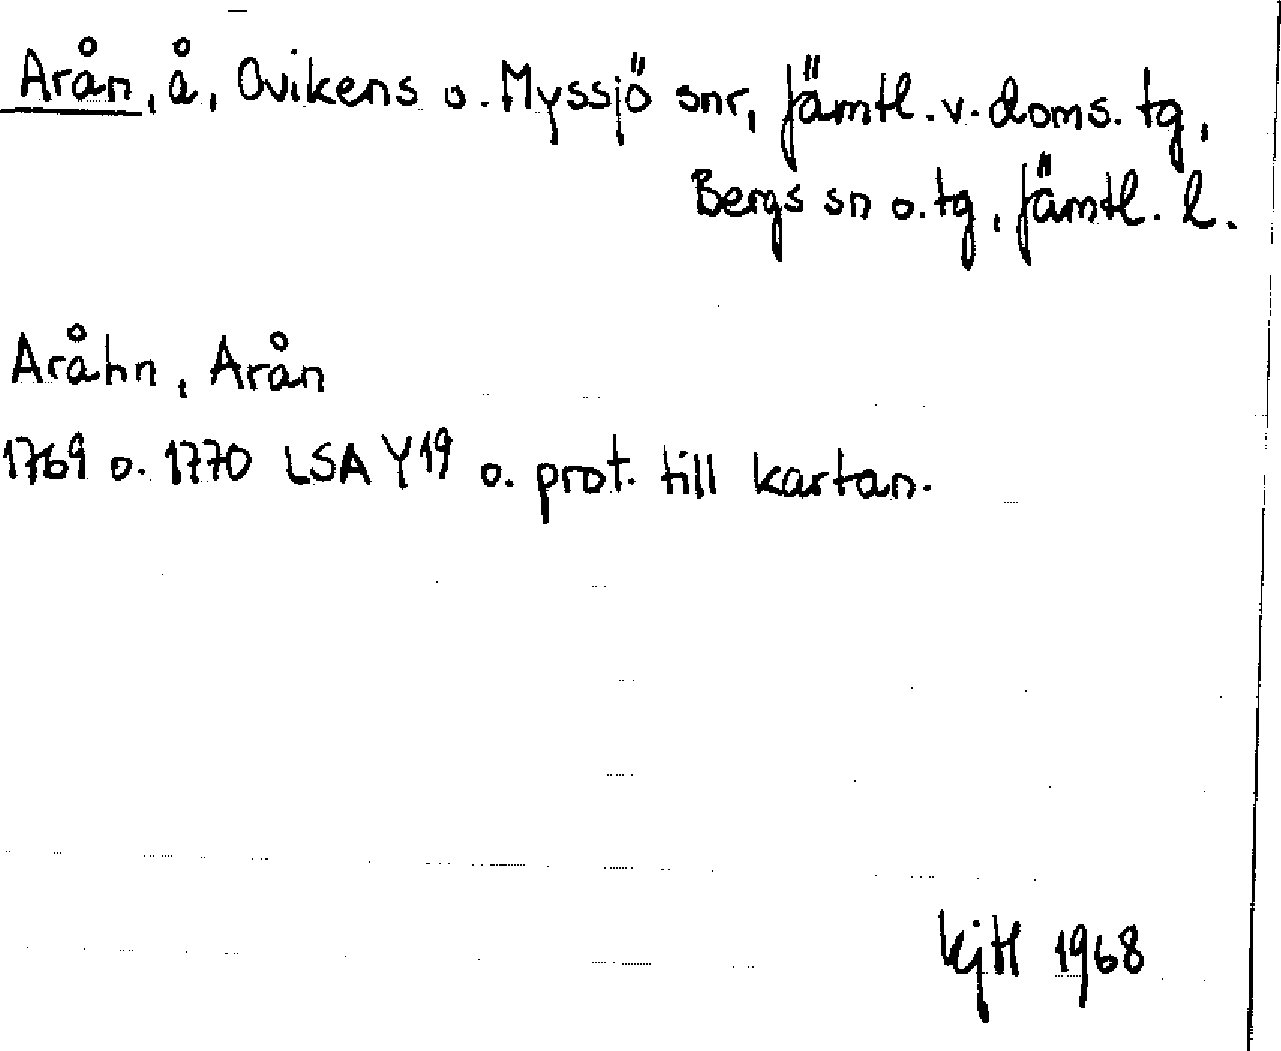 Arån, å, Ovikens o. Myssjö snr, Jämtl. v. doms. tg,
Bergs sn o. tg, Jämtl. l.
Aråhn, Arån
1769 o. 1770 LSA Y19 o. prot. till kartan.
1968